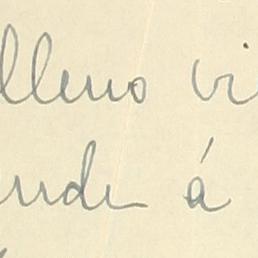 lleno vi
ende á